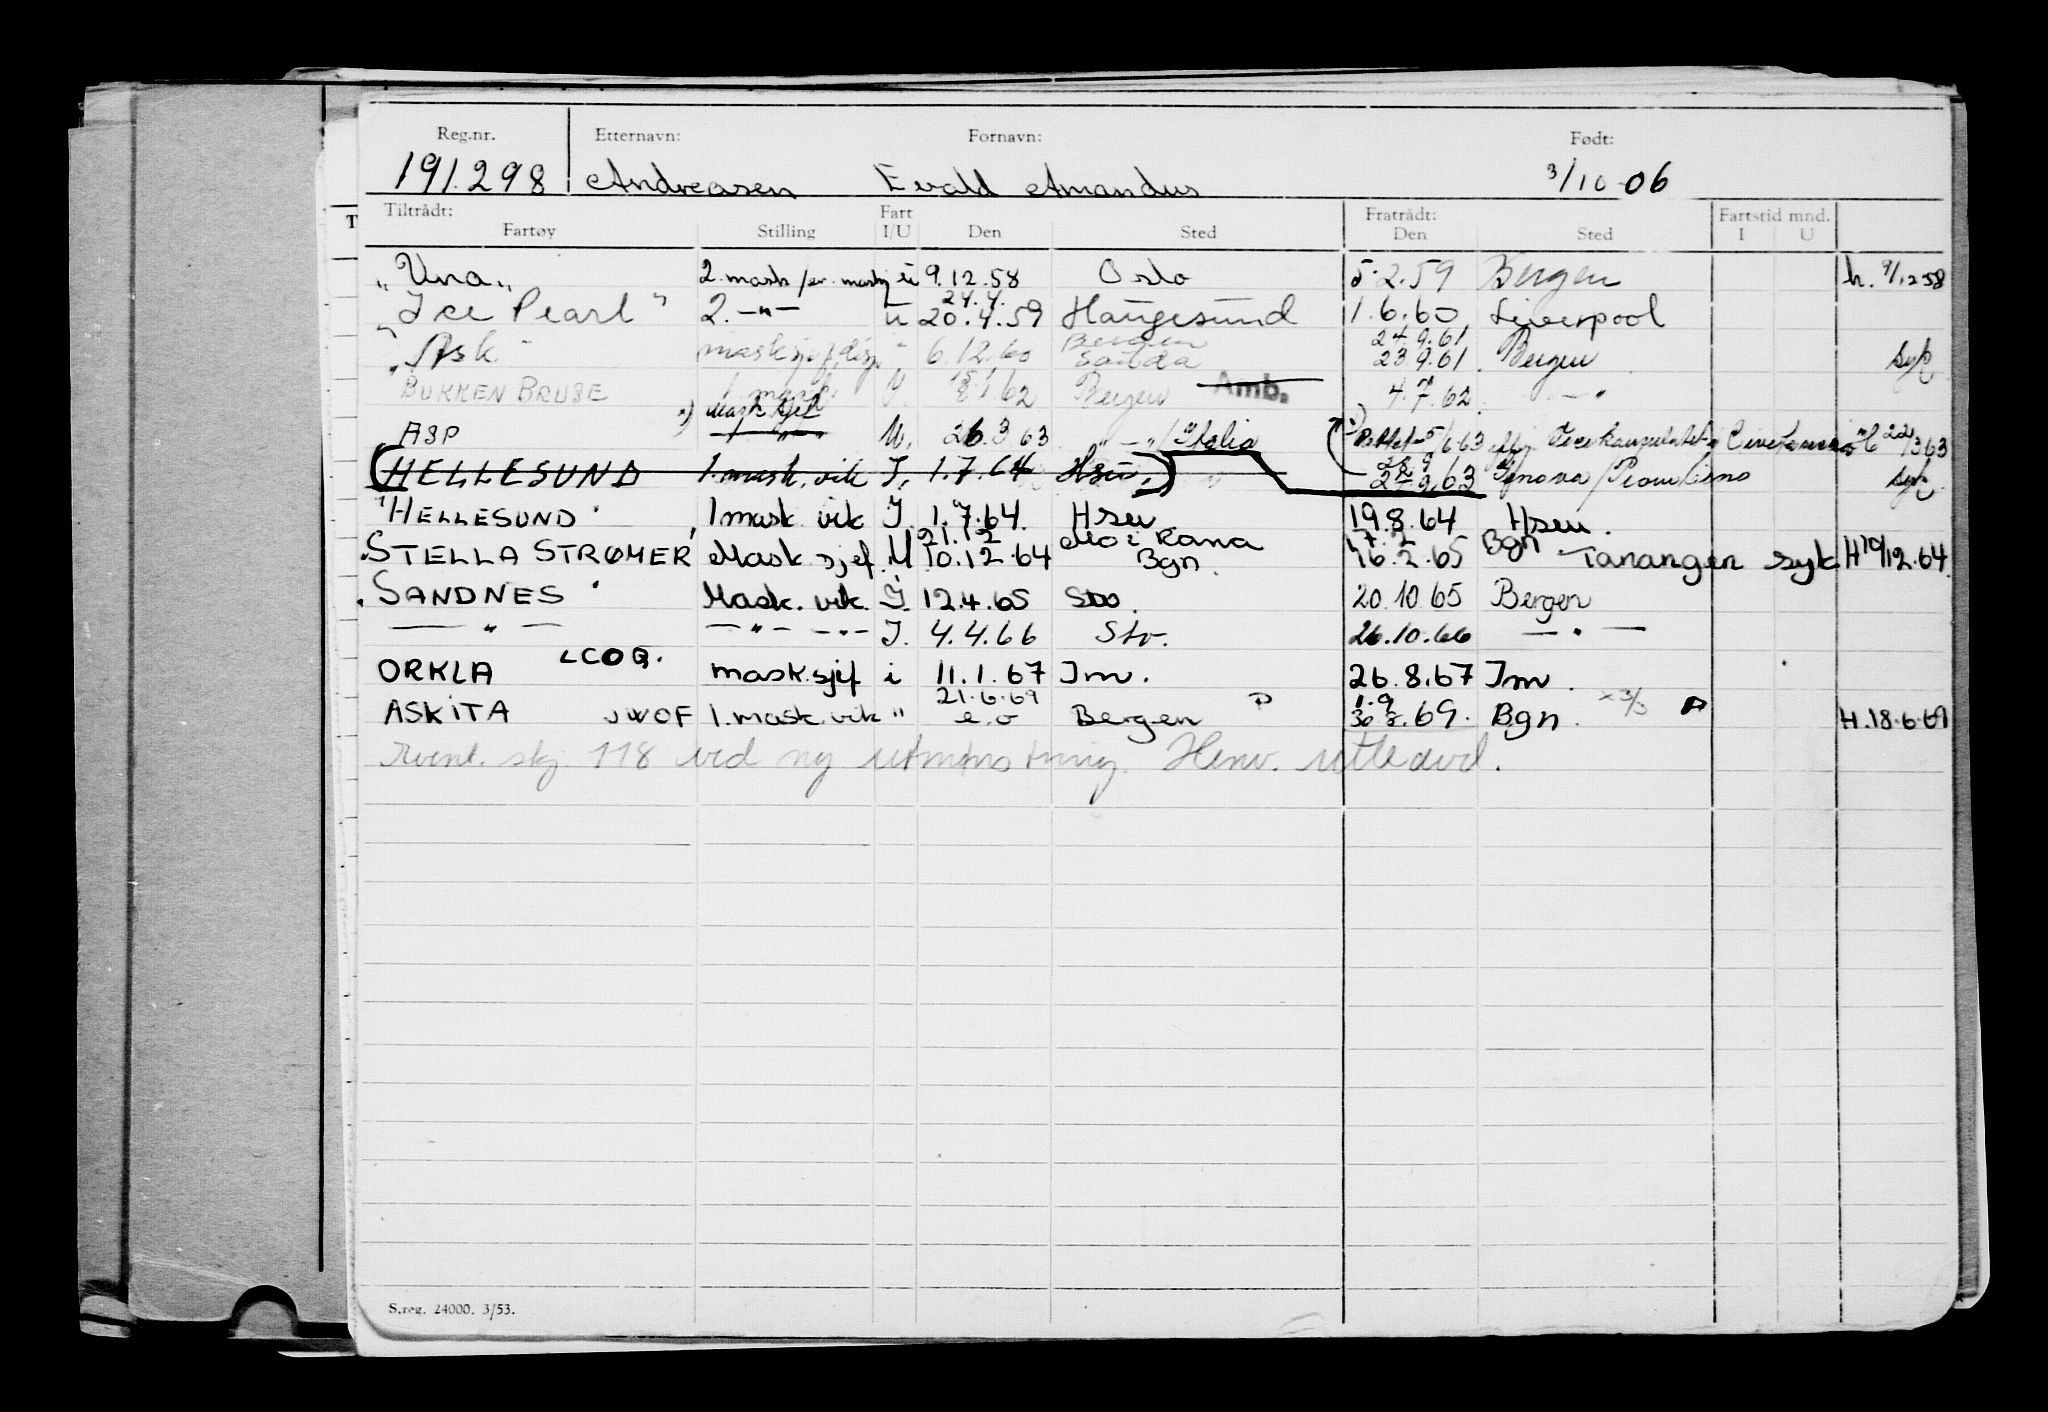 Reg.nr. Etternavn: Fornavn: Født:
191.298 Andreasen Evald Amandus 3/10-06
Tiltrådt: Fart Fratrådt: Fartstid mnd.
T Fartøy Stilling I/U Den Sted Den Sted I U
"Una" 2. mask/ u 9.12.58 Oslo 5.2.59 Bergen h. 9/12 58
24.4.
"Ice Pearl" 2. -"- u 20.4.59 Haugesund 1.6.60 Liverpool
Bergen 24.9.61
"Ask" masksjef disp. " 6.12.60 Sauda 23.9.61 Bergen syk
15.1
BUKKEN BRUSE 1. mask. U. 8.1.62 Bergen Amb. 4.7.62 -"-
x) Mask sjef
ASP 1. " " U. 26.3 63 -"-/Italia 5/6 63 22/3 63
28.9
(HELLESUND 1. mask. vik I. 1.7.64 Hsu.) 27.9.63 Genova/Piombino syk
"HELLESUND" 1 mask vik I. 1.7.64. Hseu 19.8.64 Hseu.
21.12 Mo i Rana 17.2 Bgn
"STELLA STRØMER" Mask sjef. U 10.12 64 Bgn. 16.2.65 Tanangen syk H 10/12.64
"SANDNES" Mask. vik. I. 12.4.65 Sto. 20.10.65 Bergen
-"- -"- -"- I. 4.4.66 Sto. 26.10.66 -"-
ORKLA LCOQ. mask.sjef i 11.1.67 Im. 26.8.67 Im.
21.6.69 1.9
ASKITA JWOF 1. mask vik " e.o Bergen P 30.8.69. Bgn. x 3/3 A H.18.6.69
Event. skj. 118 ved ny utmønstring. Henv. utleavd.
S.reg. 24000. 3/53.